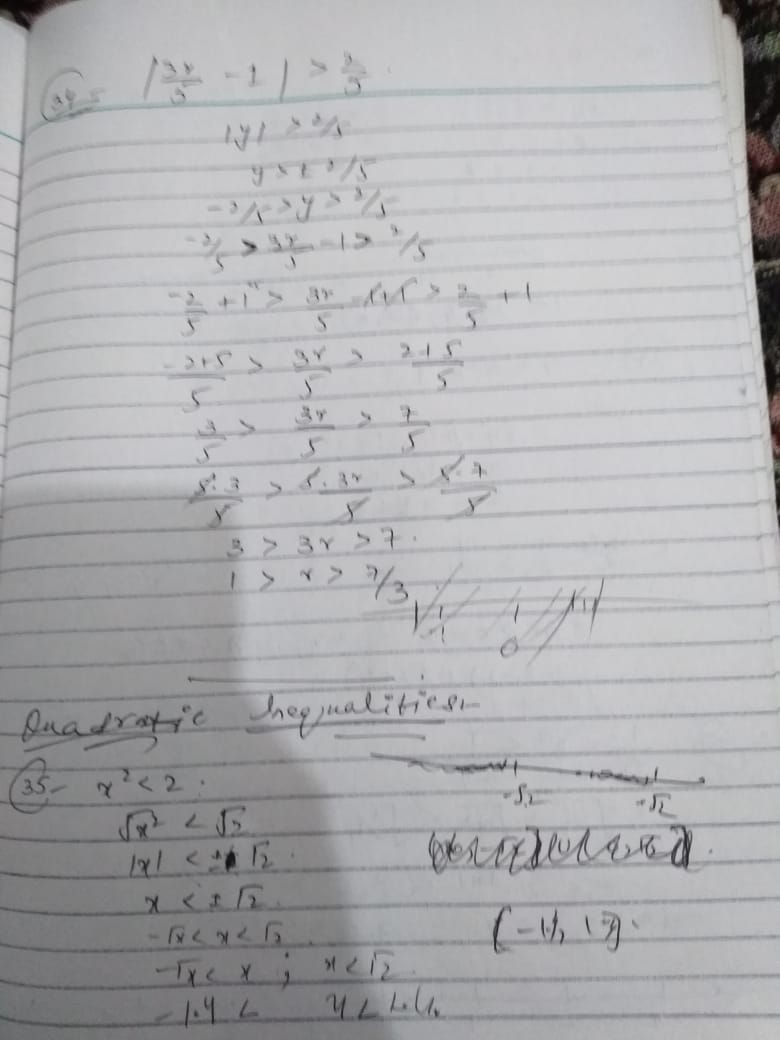 34- |3x/5 - 1| > 2/5.
|y| > 2/5
y > ± 2/5
-2/5 > y > 2/5
-2/5 > 3x/5 - 1 > 2/5
-2/5 + 1 > 3x/5 - 1+1 > 2/5 + 1
-2+5/5 > 3x/5 > 2+5/5
3/5 > 3x/5 > 7/5
5·3/5 > 5·3x/5 > 5·7/5
3 > 3x > 7.
1 > x > 7/3
0
Quadratic Inequalities:-
35- x² < 2.
-√2 -√2
√x² < √2
|x| < ± √2.
x < ± √2.
-√2 < x < √2
-√2 < x ; x < √2
-1.4 <